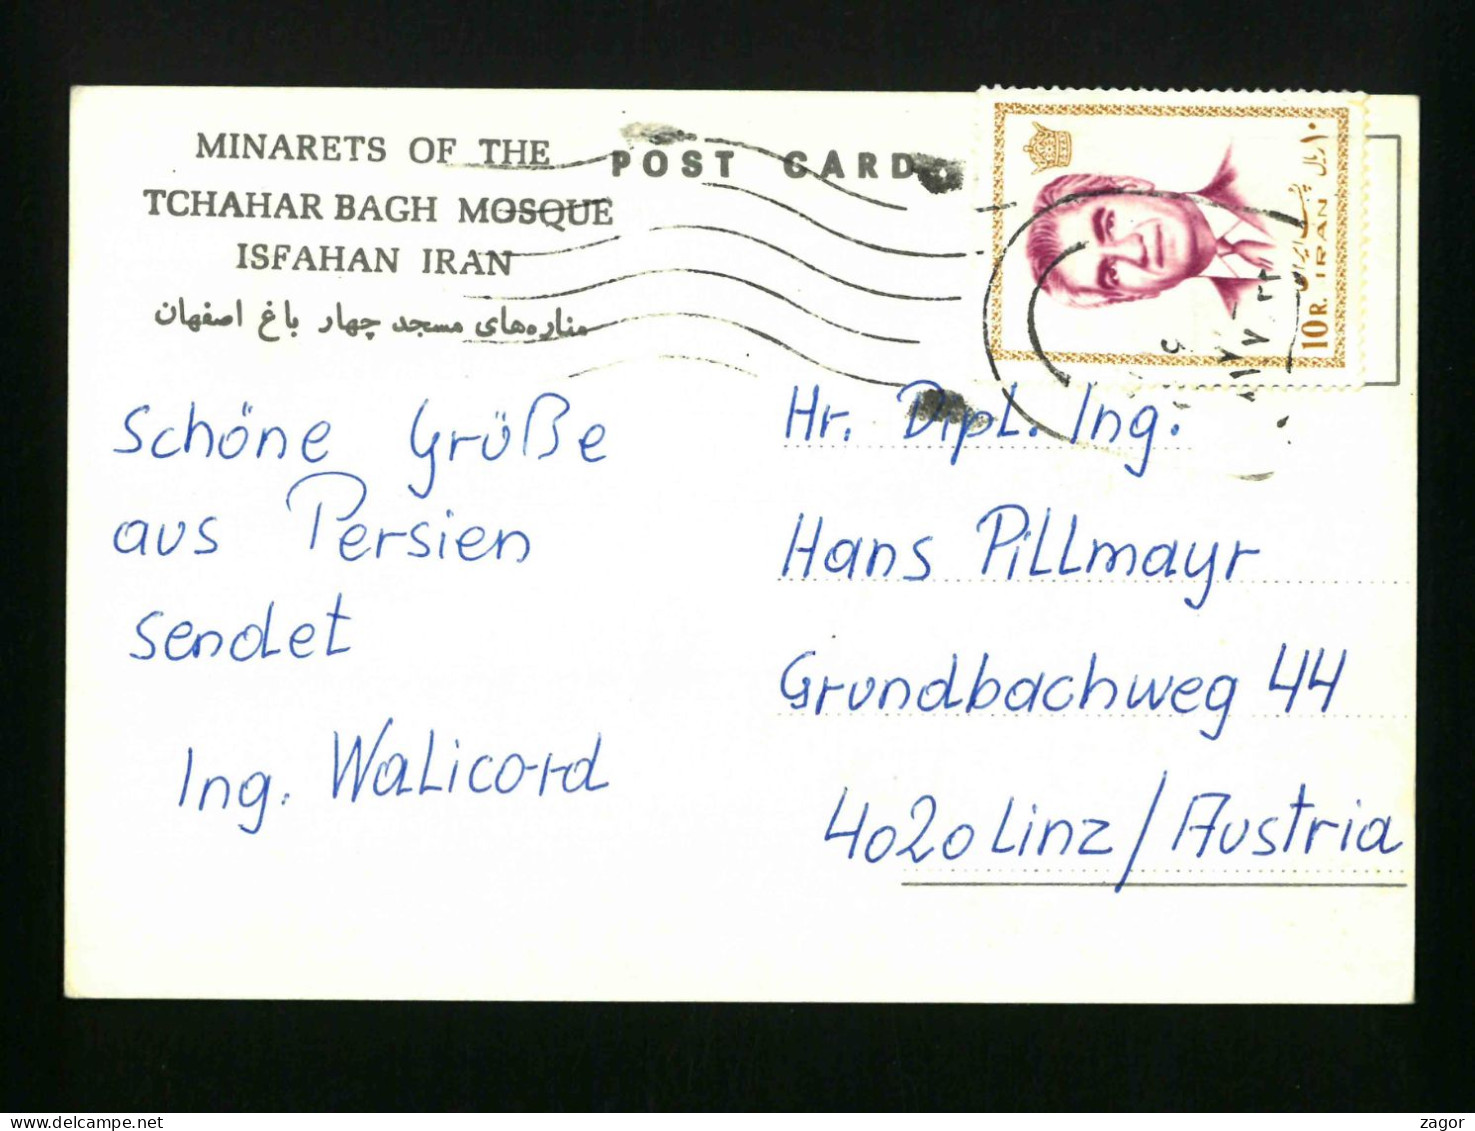 MINARETS OF THE
TCHAHAR BAGH MOSQUE
ISFAHAN IRAN
مناره‌های مسجد چهار باغ اصفهان
POST CARD
۱۰ ریال
IRAN
10 R.
Schöne Grüße
aus Persien
sendet
Ing. Walicord
Hr. Dipl. Ing.
Hans Pillmayr
Grundbachweg 44
4020 Linz / Austria
zagor